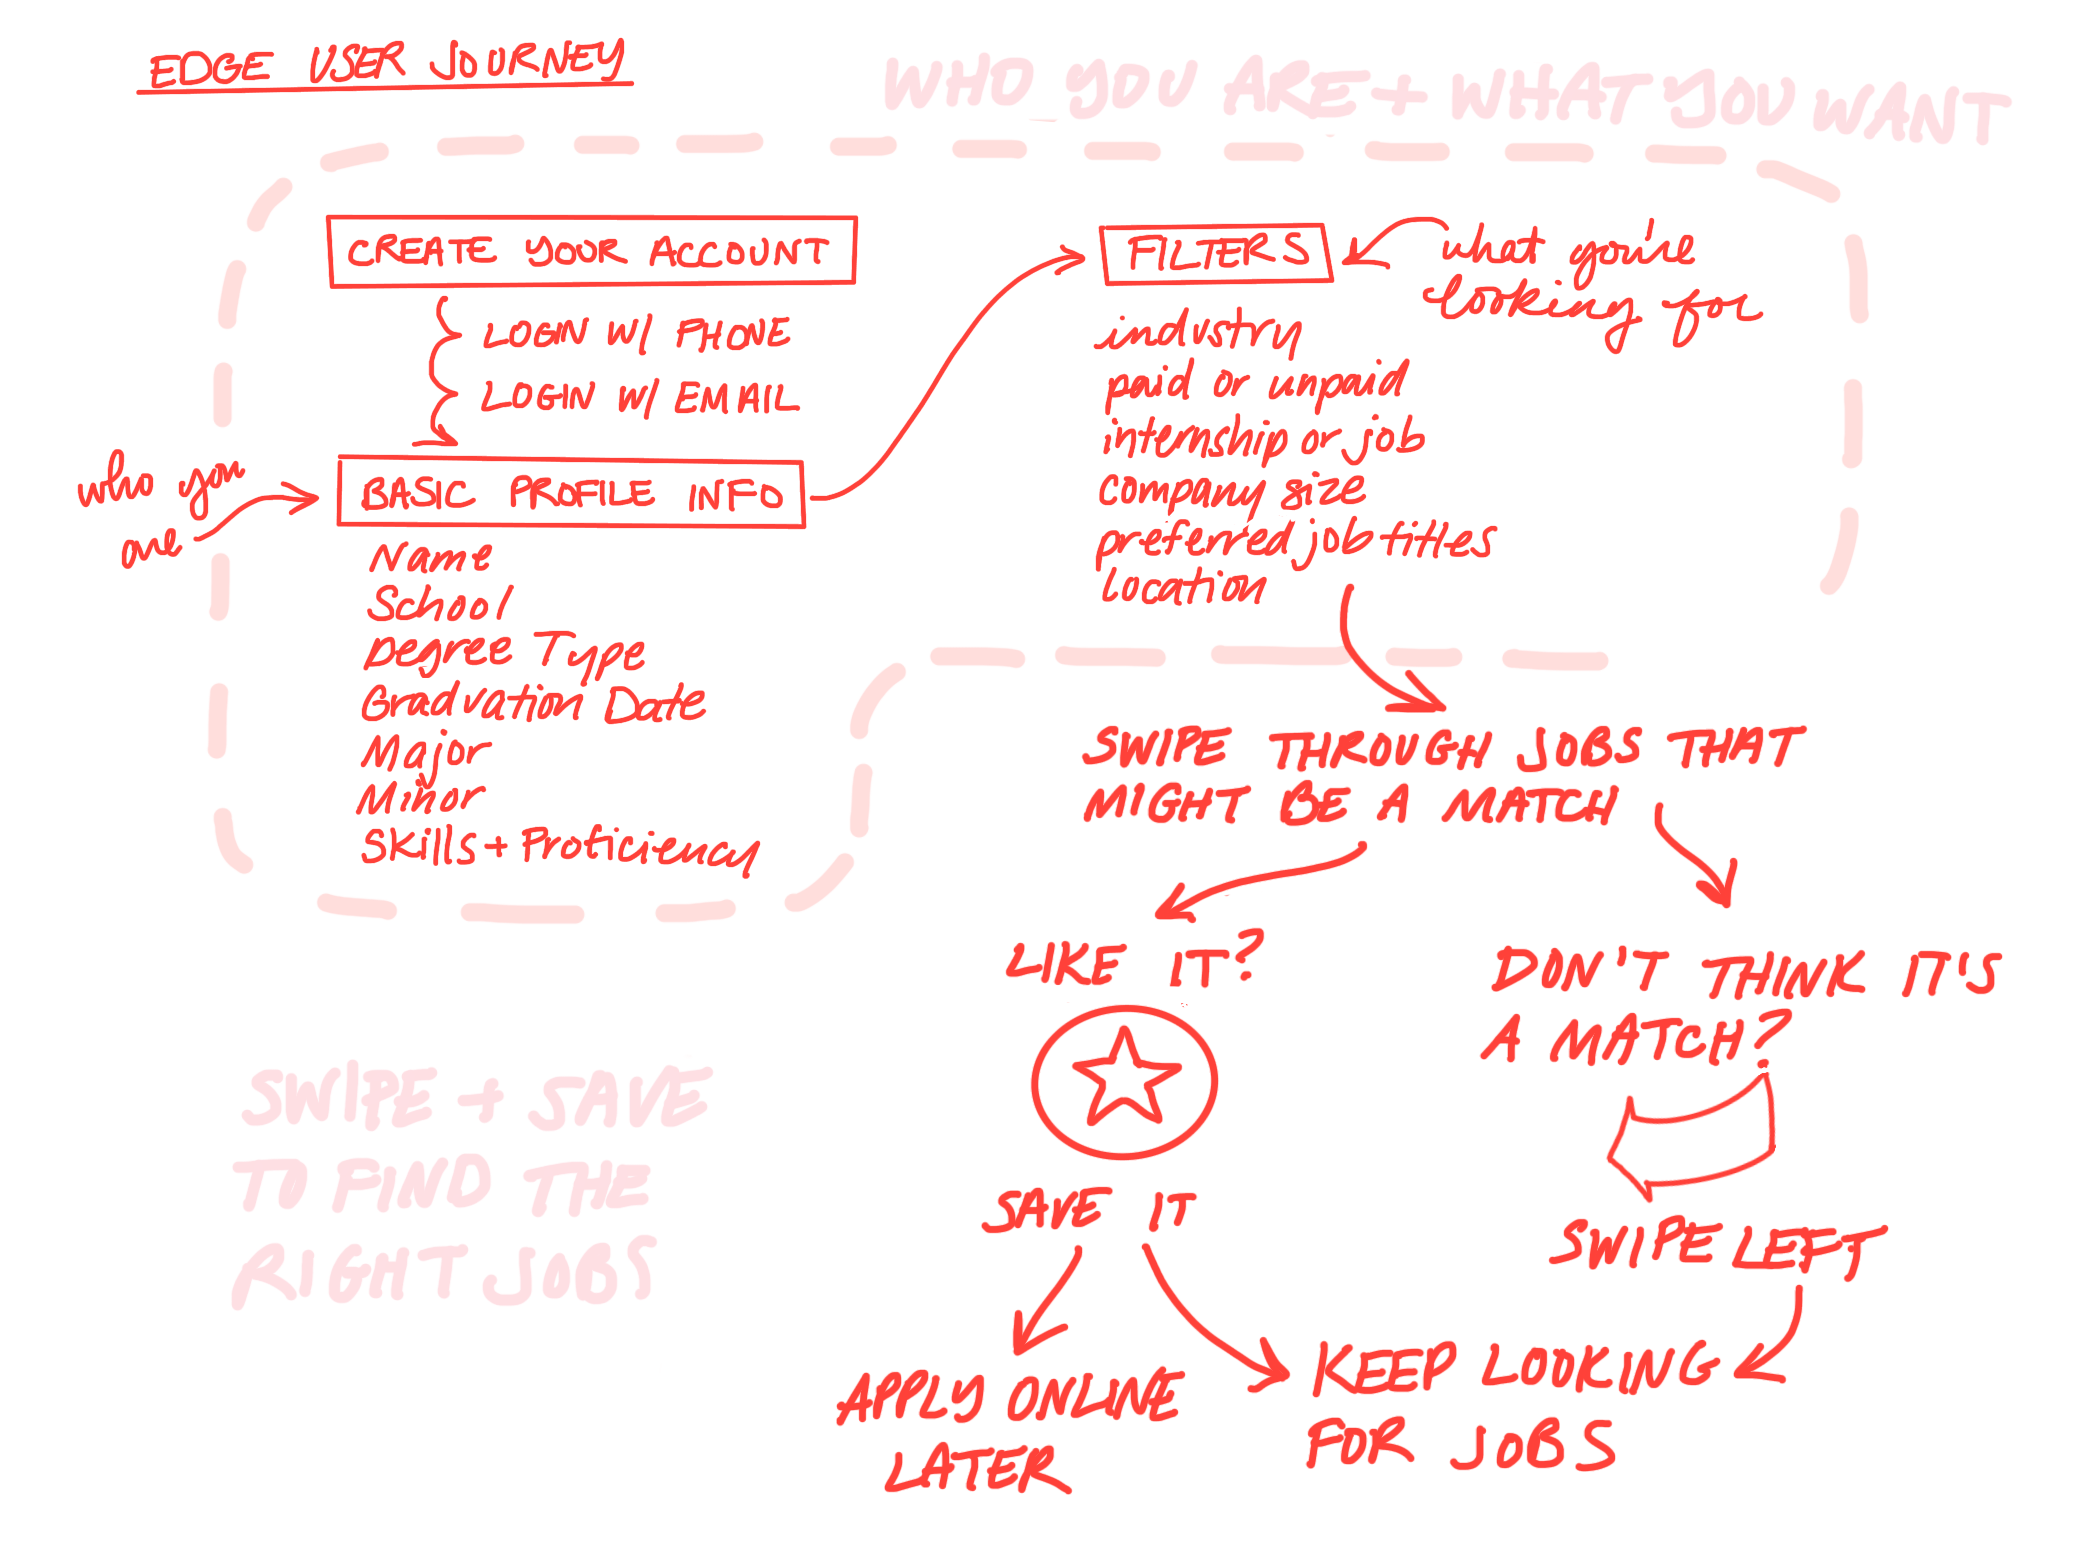 EDGE USER JOURNEY
WHO YOU ARE + WHAT YOU WANT
CREATE YOUR ACCOUNT
LOGIN W/ PHONE
LOGIN W/ EMAIL
who you
are
BASIC PROFILE INFO
Name
School
Degree Type
Graduation Date
Major
Minor
Skills + Proficiency
FILTERS
what you're
looking for
industry
paid or unpaid
internship or job
company size
preferred job titles
location
SWIPE THROUGH JOBS THAT
MIGHT BE A MATCH
LIKE IT?
SAVE IT
DON'T THINK IT'S
A MATCH?
SWIPE LEFT
APPLY ONLINE
LATER
KEEP LOOKING
FOR JOBS
SWIPE + SAVE
TO FIND THE
RIGHT JOBS